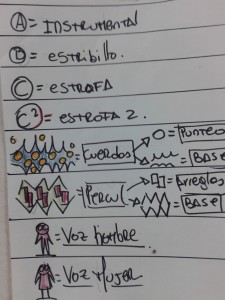 A = INSTRUMENTAL
B = estribillo.
C = estrofa
C2 = estrofa 2.
= Cuerdas = Punteo
= Base
= Percu = Arreglos
= Base
= Voz Hombre
= Voz Mujer